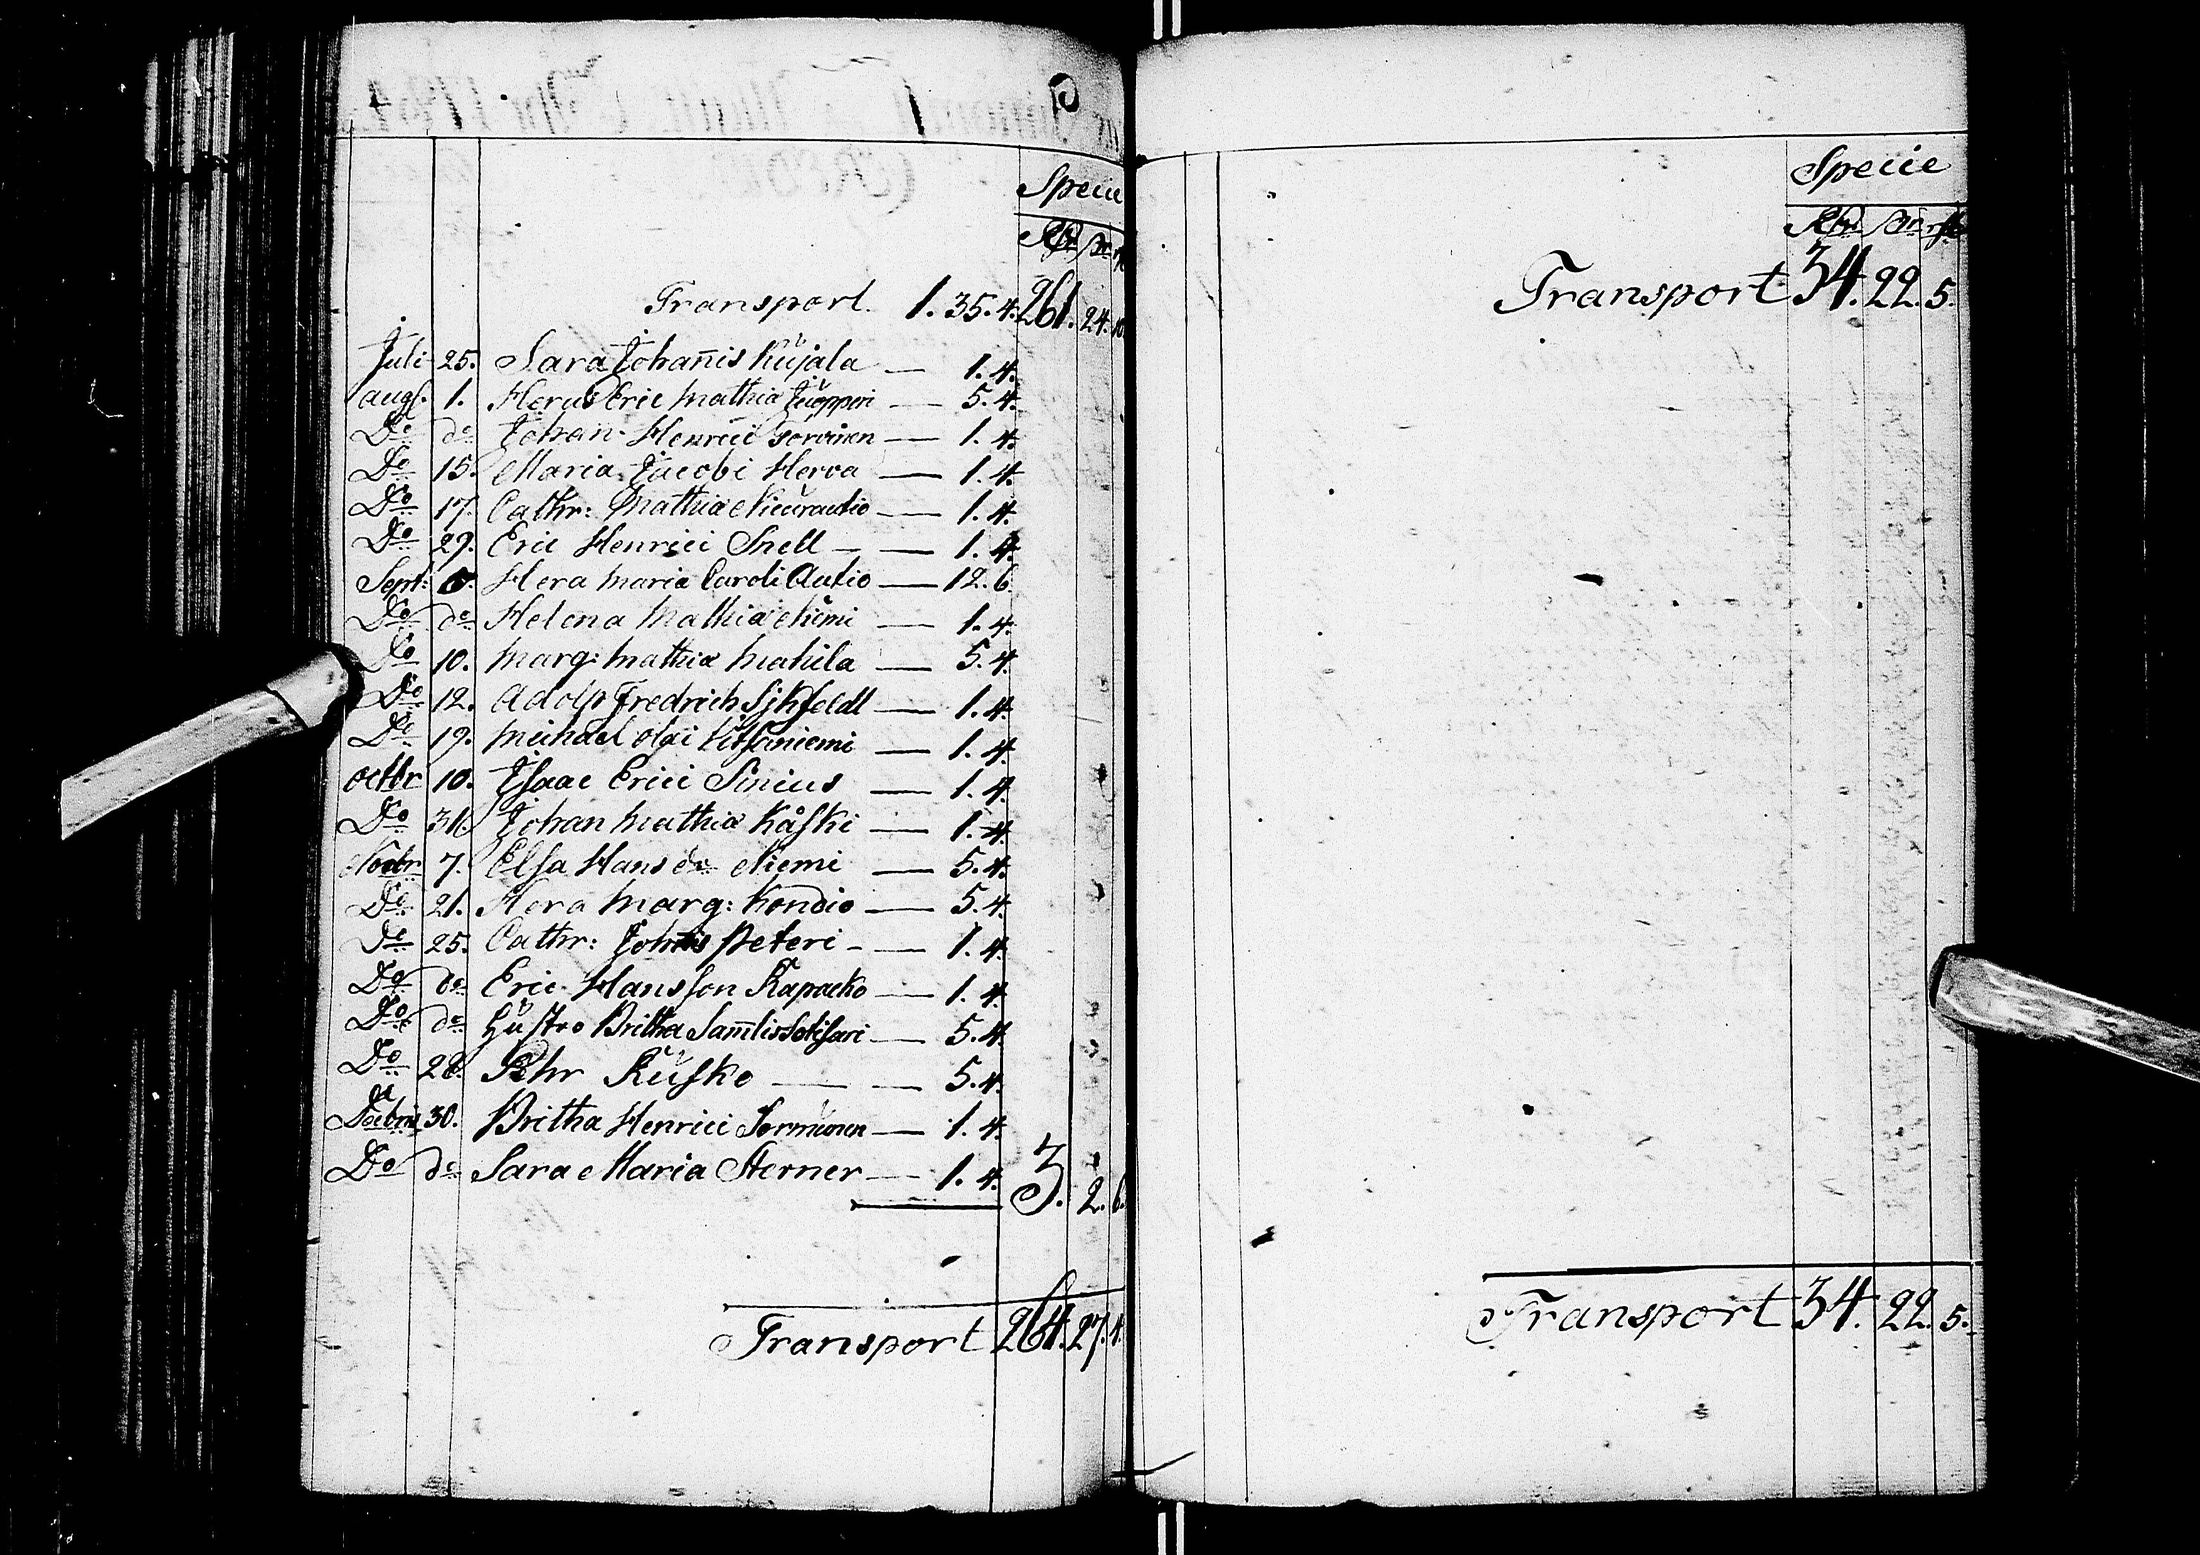 Specie
Rdr sk r
Transport. 1. 35. 4. 261. 24. 10
Juli 25. Sara Johan̄is Kujala — 1. 4.
aug. 1. Heru Eric Mathiæ Juopperi — 5. 4.
Do do Johan Henrici Torvinen — 1. 4.
Do 15. Maria Jacobi Herva — 1. 4.
Do 17. Cathr: Mathiæ Nieurautio — 1. 4.
Do 29. Eric Henrici Snell — 1. 4.
Sept: 6. Hera Maria Caroli Autio — 12. 6.
Do do Helena Mathiæ Niemi — 1. 4.
Do 10. Marg: Mathiæ Matila — 5. 4.
Do 12. Adolp Fredrich — 1. 4.
Do 19. Michael Olai Kitsaniemi — 1. 4.
octbr 10. Isaac Erici Sinius — 1. 4.
Do 31. Johan Mathiæ Kåski — 1. 4.
Novbr 7. Elsa Hans dr Niemi — 5. 4.
Do 21. Hera Marg: Kondio — 5. 4.
Do 25. Cathr: Johnis Peteri — 1. 4.
Do do Eric Hansson Rapacko — 1. 4.
Do do Hustro Britha Sam̄lis — 5. 4.
Do 28. Pehr Rusko — 5. 4.
Decbris 30. Britha Henrici Sormunen — 1. 4.
Do do Sara Maria Sterner — 1. 4. 3. 2. 6.
Transport 264. 27. 4.
Specie
Rdr sk r
Transport 34. 22. 5.
Transport 34. 22. 5.